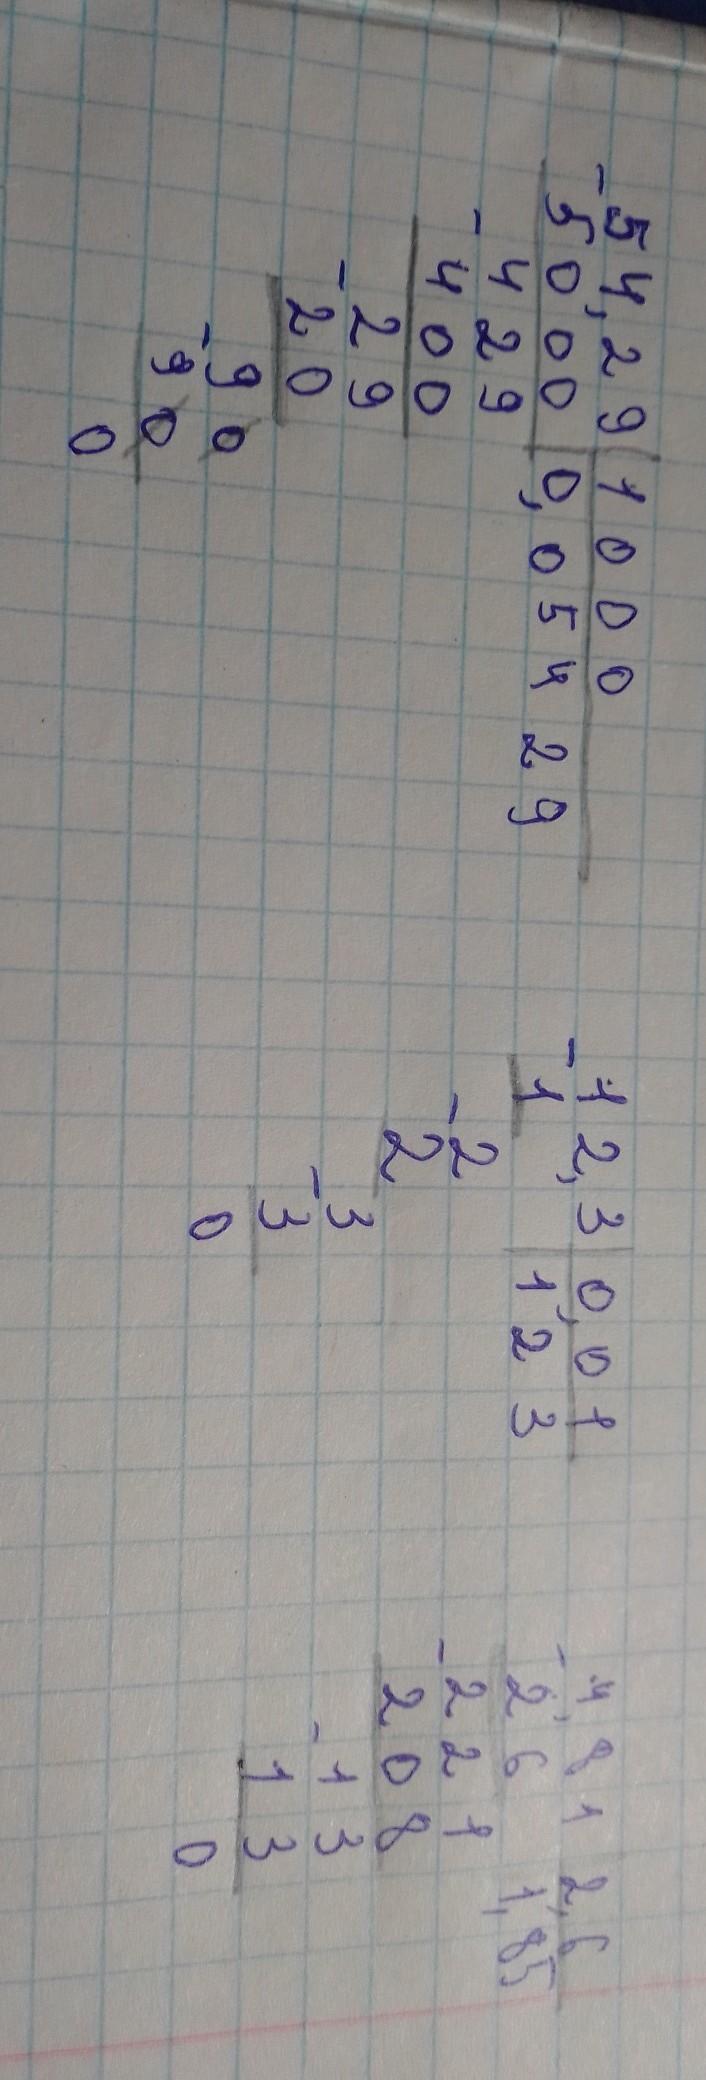 -54,29 1000
5000 0,05429
-429
400
-29
20
-90
90
0
-12,3 0,01
1 1,23
-2
2
-3
3
0
-4,81 2,6
26 1,85
-221
208
-13
13
0